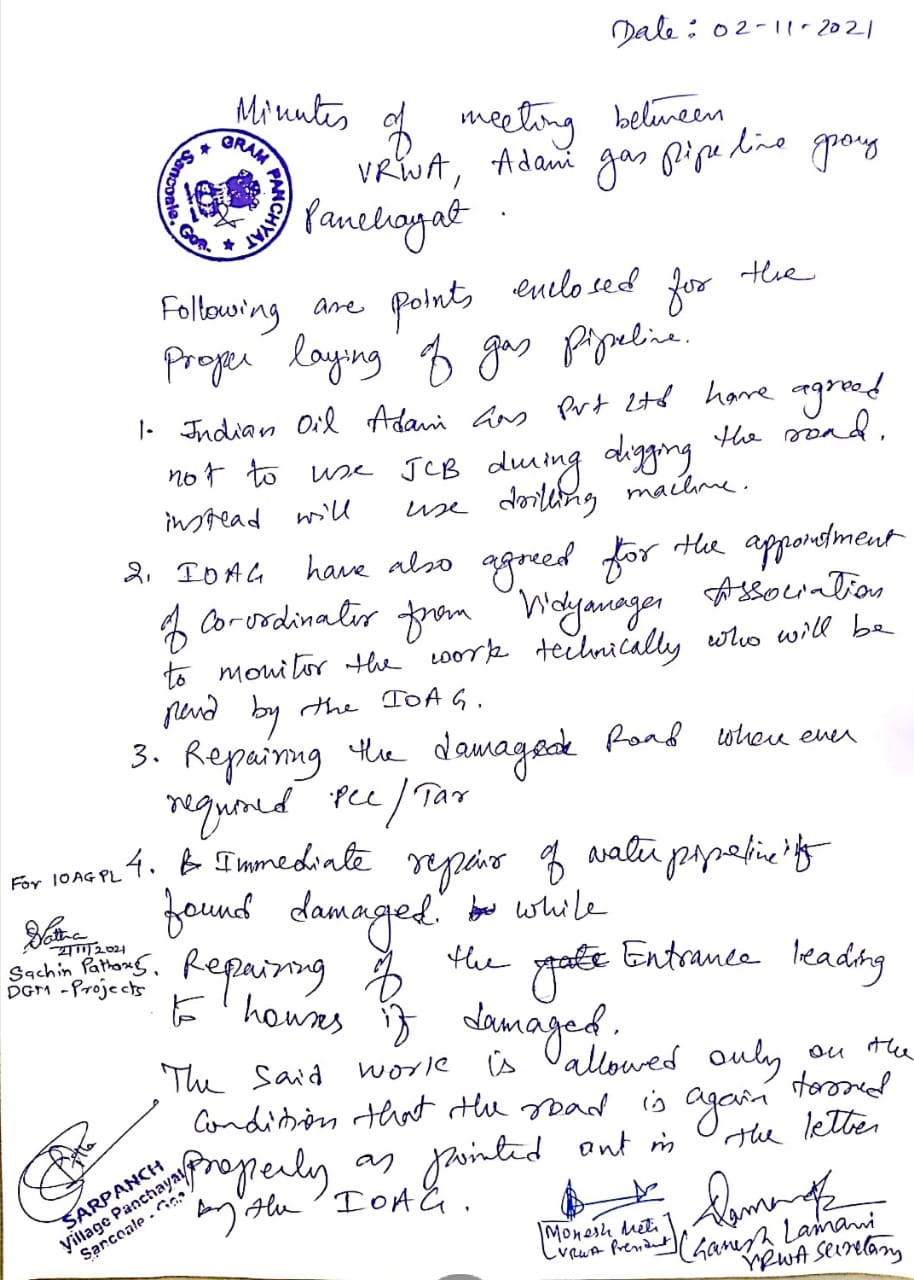 Date : 02-11-2021
Minutes of meeting between
VRWA, Adani gas pipeline group
&
Panchayat.
GRAM PANCHYAT
Sancoale, Goa.
Following are points enclosed for the
Proper laying of gas pipeline.
1. Indian Oil Adani Gas Pvt Ltd have agreed
not to use JCB during digging the road.
instead will use drilling machine.
2. IOAG have also agreed for the appointment
of Co-ordinator from Vidyanager Association
to monitor the work technically who will be
paid by the IOAG.
3. Repairing the damaged Road where ever
required PCC/Tar
4. Immediate repair of water pipeline if
found damaged. while
5. Repairing of the gate Entrance leading
to houses if damaged.
The said work is allowed only on the
condition that the road is again tarred
properly as pointed out in the letter
by the IOAG.
For IOAGPL
2/11/2021
Sachin
DGM - Projects
SARPANCH
Village Panchayat
Sancoale - Goa
[Monesh Meti]
VRWA President
(Ganesh Lamani
VRWA Secretary